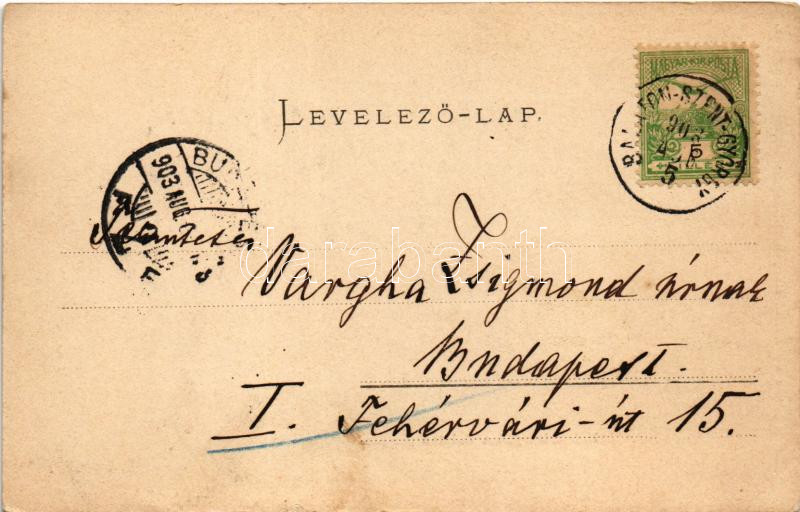 MAGYAR·KIR·POSTA
BALATON-SZENT-GYÖRGY
903
5
LEVELEZŐ-LAP.
903 AUG
darabanth
Vargha Zsigmond úrnak
Budapest.
I. Fehérvári-út 15.